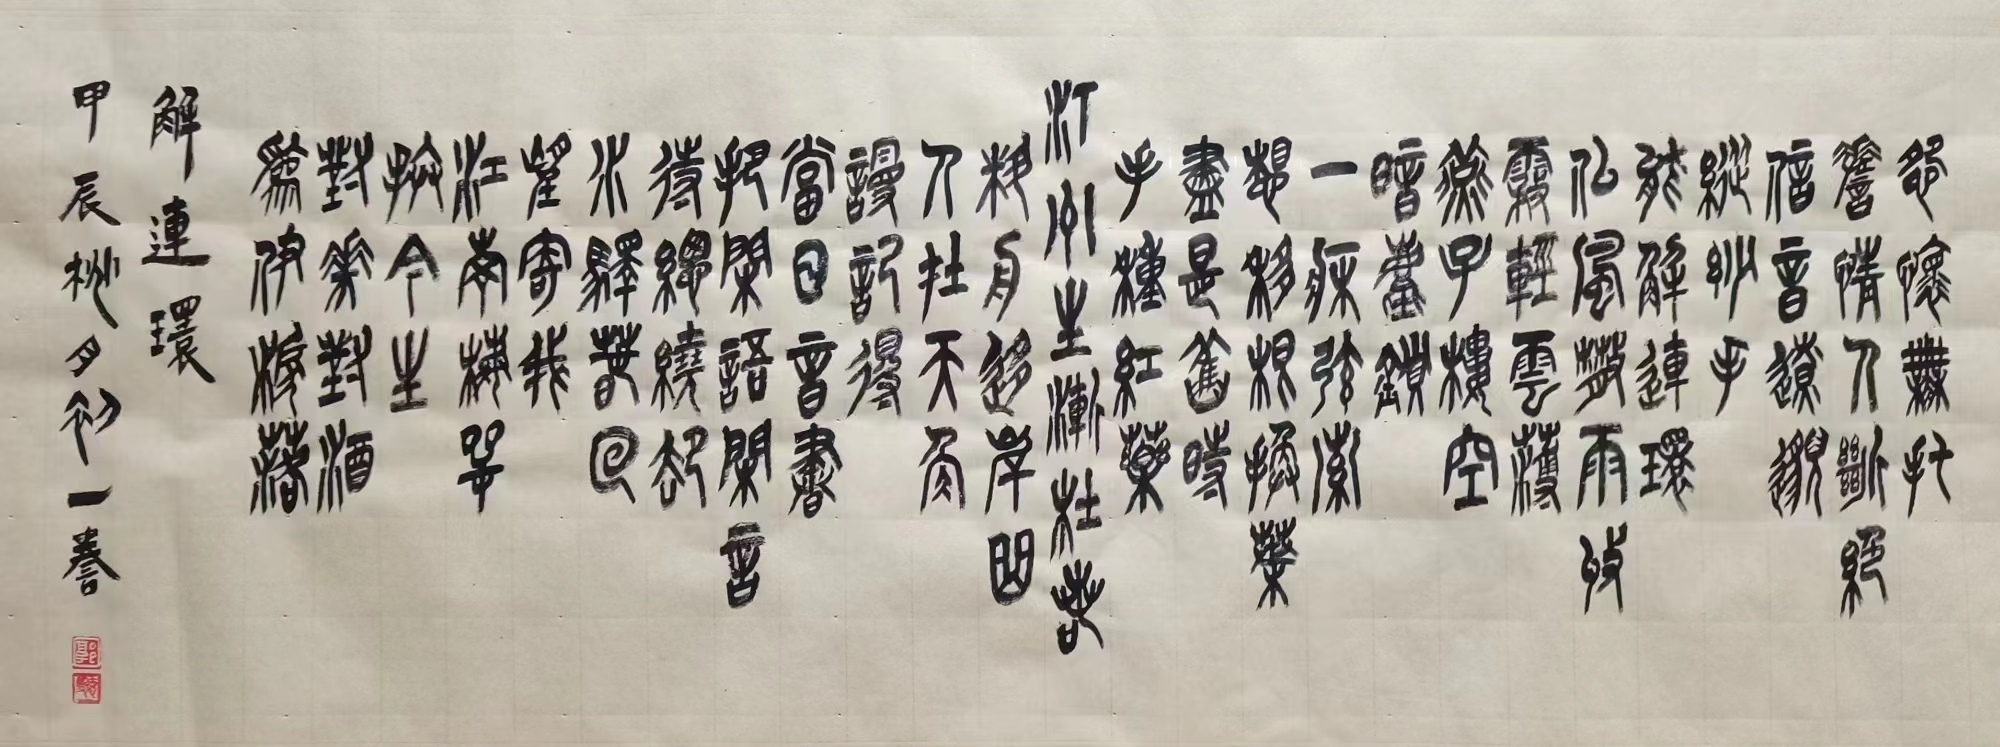 怨懷無托
嗟情人斷絕
信音遼邈
縱妙手
能解連環
似風散雨收
霧輕雲薄
燕子樓空
暗塵鎖
一床弦索
想移根換葉
盡是舊時
手種紅藥
汀州生漸杜若
料舟迻岸曲
人在天角
謾記得
當日音書
把閑語閑言
待總繞卻
水驛春回
望寄我
江南梅萼
拚今生
對花對酒
為伊淚落
解連環
甲辰桃月初一謄